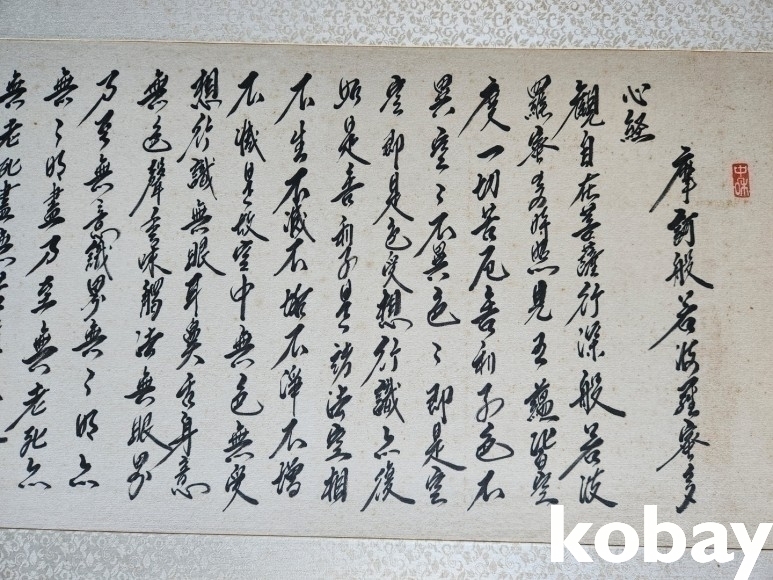 中咊
摩訶般若波羅蜜多
心經
觀自在菩薩行深般若波
羅蜜多時照見五蘊皆空
度一切苦厄舍利子色不
異空々不異色々即是空
空即是色受想行識亦復
如是舍利子是諸法空相
不生不滅不垢不淨不增
不減是故空中無色無受
想行識無眼耳鼻舌身意
無色聲香味觸法無眼界
乃至無意識界無々明亦
無々明盡乃至無老死亦
無老死盡無苦
kobay